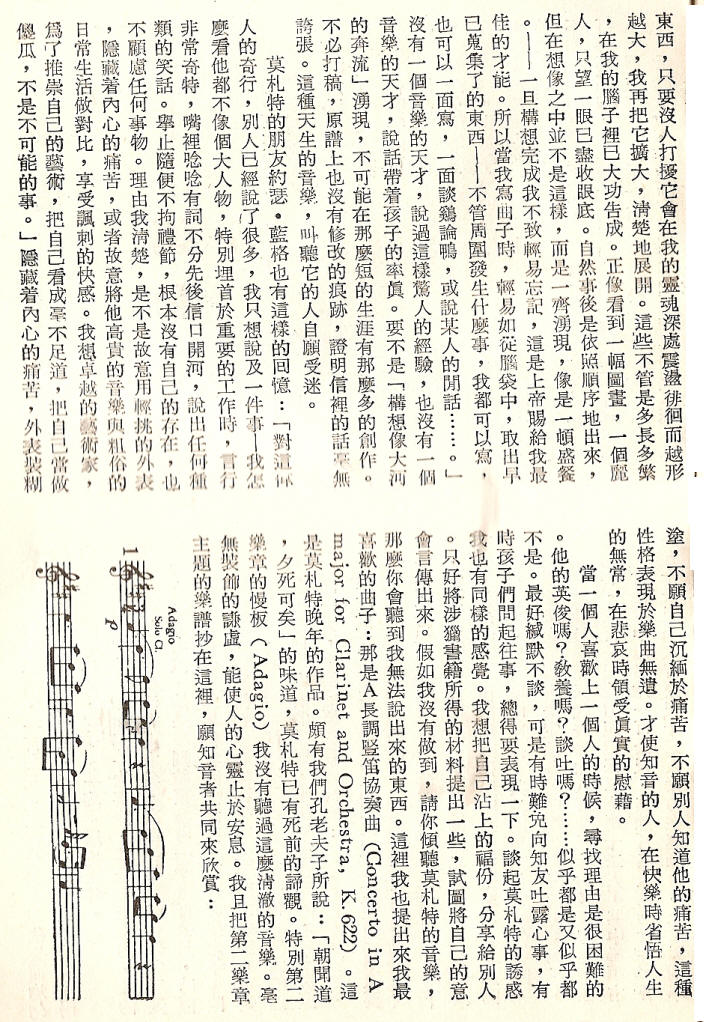 東西，只要沒人打擾它會在我的靈魂深處震盪徘徊而越形
越大，我再把它擴大，清楚地展開。這些不管是多長多繁
，在我的腦子裡已大功告成。正像看到一幅圖畫，一個麗
人，只望一眼已盡收眼底。自然事後是依照順序地出來，
但在想像之中並不是這樣，而是一齊湧現，像是一頓盛餐
。——一旦構想完成我不致輕易忘記，這是上帝賜給我最
佳的才能。所以當我寫曲子時，輕易如從腦袋中，取出早
已蒐集了的東西——不管周圍發生什麼事，我都可以寫，
也可以一面寫，一面談鷄論鴨，或說某人的閒話……。」
沒有一個音樂的天才，說過這樣驚人的經驗，也沒有一個
音樂的天才，說話帶着孩子的率眞。要不是「構想像大河
的奔流」湧現，不可能在那麼短的生涯有那麼多的創作。
不必打稿，原譜上也沒有修改的痕跡，證明信裡的話毫無
誇張。這種天生的音樂，叫聽它的人自願受迷。
莫札特的朋友約瑟·藍格也有這樣的回憶：「對這位
人的奇行，別人已經說了很多，我只想說及一件事—我怎
麼看他都不像個大人物，特別埋首於重要的工作時，言行
非常奇特，嘴裡唸唸有詞不分先後信口開河，說出任何種
類的笑話。舉止隨便不拘禮節，根本沒有自己的存在，也
不顧慮任何事物。理由我清楚，是不是故意用輕挑的外表
，隱藏着內心的痛苦，或者故意將他高貴的音樂與粗俗的
日常生活做對比，享受諷刺的快感。我想卓越的藝術家，
爲了推崇自己的藝術，把自己看成毫不足道，把自己當做
傻瓜，不是不可能的事。」隱藏着內心的痛苦，外表裝糊
塗，不願自己沉緬於痛苦，不願別人知道他的痛苦，這種
性格表現於樂曲無遺。才使知音的人，在快樂時省悟人生
的無常，在悲哀時領受眞實的慰藉。
當一個人喜歡上一個人的時候，尋找理由是很困難的
。他的英俊嗎？敎養嗎？談吐嗎？……似乎都是又似乎都
不是。最好緘默不談，可是有時難免向知友吐露心事，有
時孩子們問起往事，總得要表現一下。談起莫札特的誘惑
我也有同樣的感覺。我想把自己沾上的福份，分享給別人
。只好將涉獵書籍所得的材料提出一些，試圖將自己的意
會言傳出來。假如我沒有做到，請你傾聽莫札特的音樂，
那麼你會聽到我無法說出來的東西。這裡我也提出來我最
喜歡的曲子：那是A長調豎笛協奏曲（Concerto in A
major for Clarinet and Orchestra, K. 622）。這
是莫札特晚年的作品。頗有我們孔老夫子所說：「朝聞道
，夕死可矣」的味道，莫札特已有死前的諦觀。特別第二
樂章的慢板（Adagio）我沒有聽過這麼清澈的音樂。毫
無裝飾的謙虛，能使人的心靈止於安息。我且把第二樂章
主題的樂譜抄在這裡，願知音者共同來欣賞：
Adagio
Solo Cl.
1
p